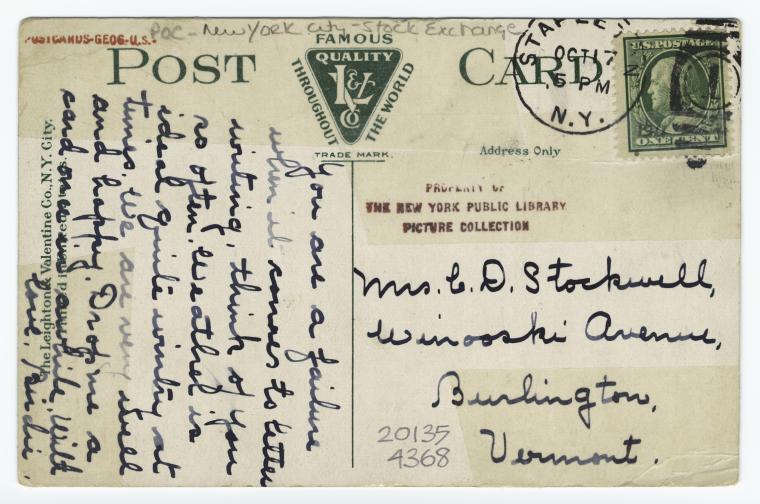 POSTCARDS-GEOG-U.S.-
POC - New York City - Stock Exchange
POST CARD
FAMOUS
QUALITY
L & V
Co
THROUGHOUT
THE WORLD
TRADE MARK.
STAPLE
OCT 17
5 PM
N.Y.
U.S. POSTAGE
ONE CENT
Address Only
PROPERTY OF
THE NEW YORK PUBLIC LIBRARY
PICTURE COLLECTION
You are a failure
when it comes to letter
writing, think of you
so often. Weather is
ideal quite wintry at
times. We are very well
and happy. Drop me a
card once in awhile, with
love,
The Leighton & Valentine Co., N.Y. City.
Mrs. C. D. Stockwell,
Winooski Avenue,
Burlington,
Vermont.
20135
4368